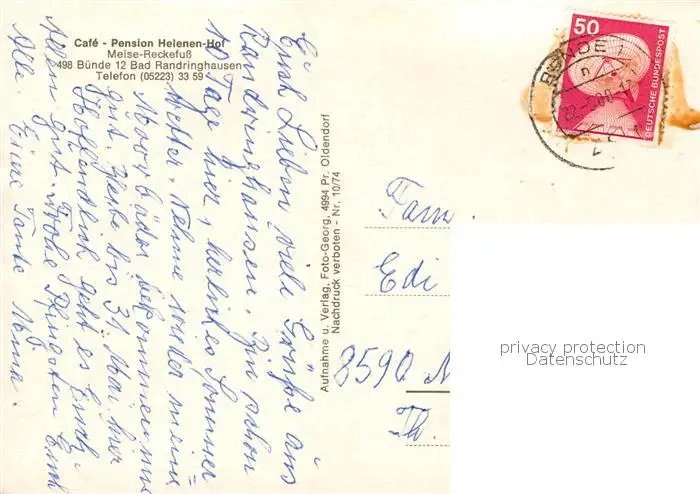 Café - Pension Helenen-Hof
Meise-Reckefuß
498 Bünde 12 Bad Randringhausen
Telefon (05223) 33 59
Euch Lieben viele Grüße aus
Randringhausen. Bin schon
10 Tage hier, herrliches Sommer
Wetter. Nehme wieder meine
Moorbäder bekommen mir
gut. Bleibe bis 31. Mai hier
Hoffendlich geht es Euch
Allen gut. Frohe Pfingsten Euch
Alle. Eure Tante Minna.
Aufnahme u. Verlag, Foto-Georg, 4994 Pr. Oldendorf
Nachdruck verboten - Nr. 10/74
50
DEUTSCHE BUNDESPOST
BÜNDE 1
Fam
Edi
8590
Th.
privacy protection
Datenschutz